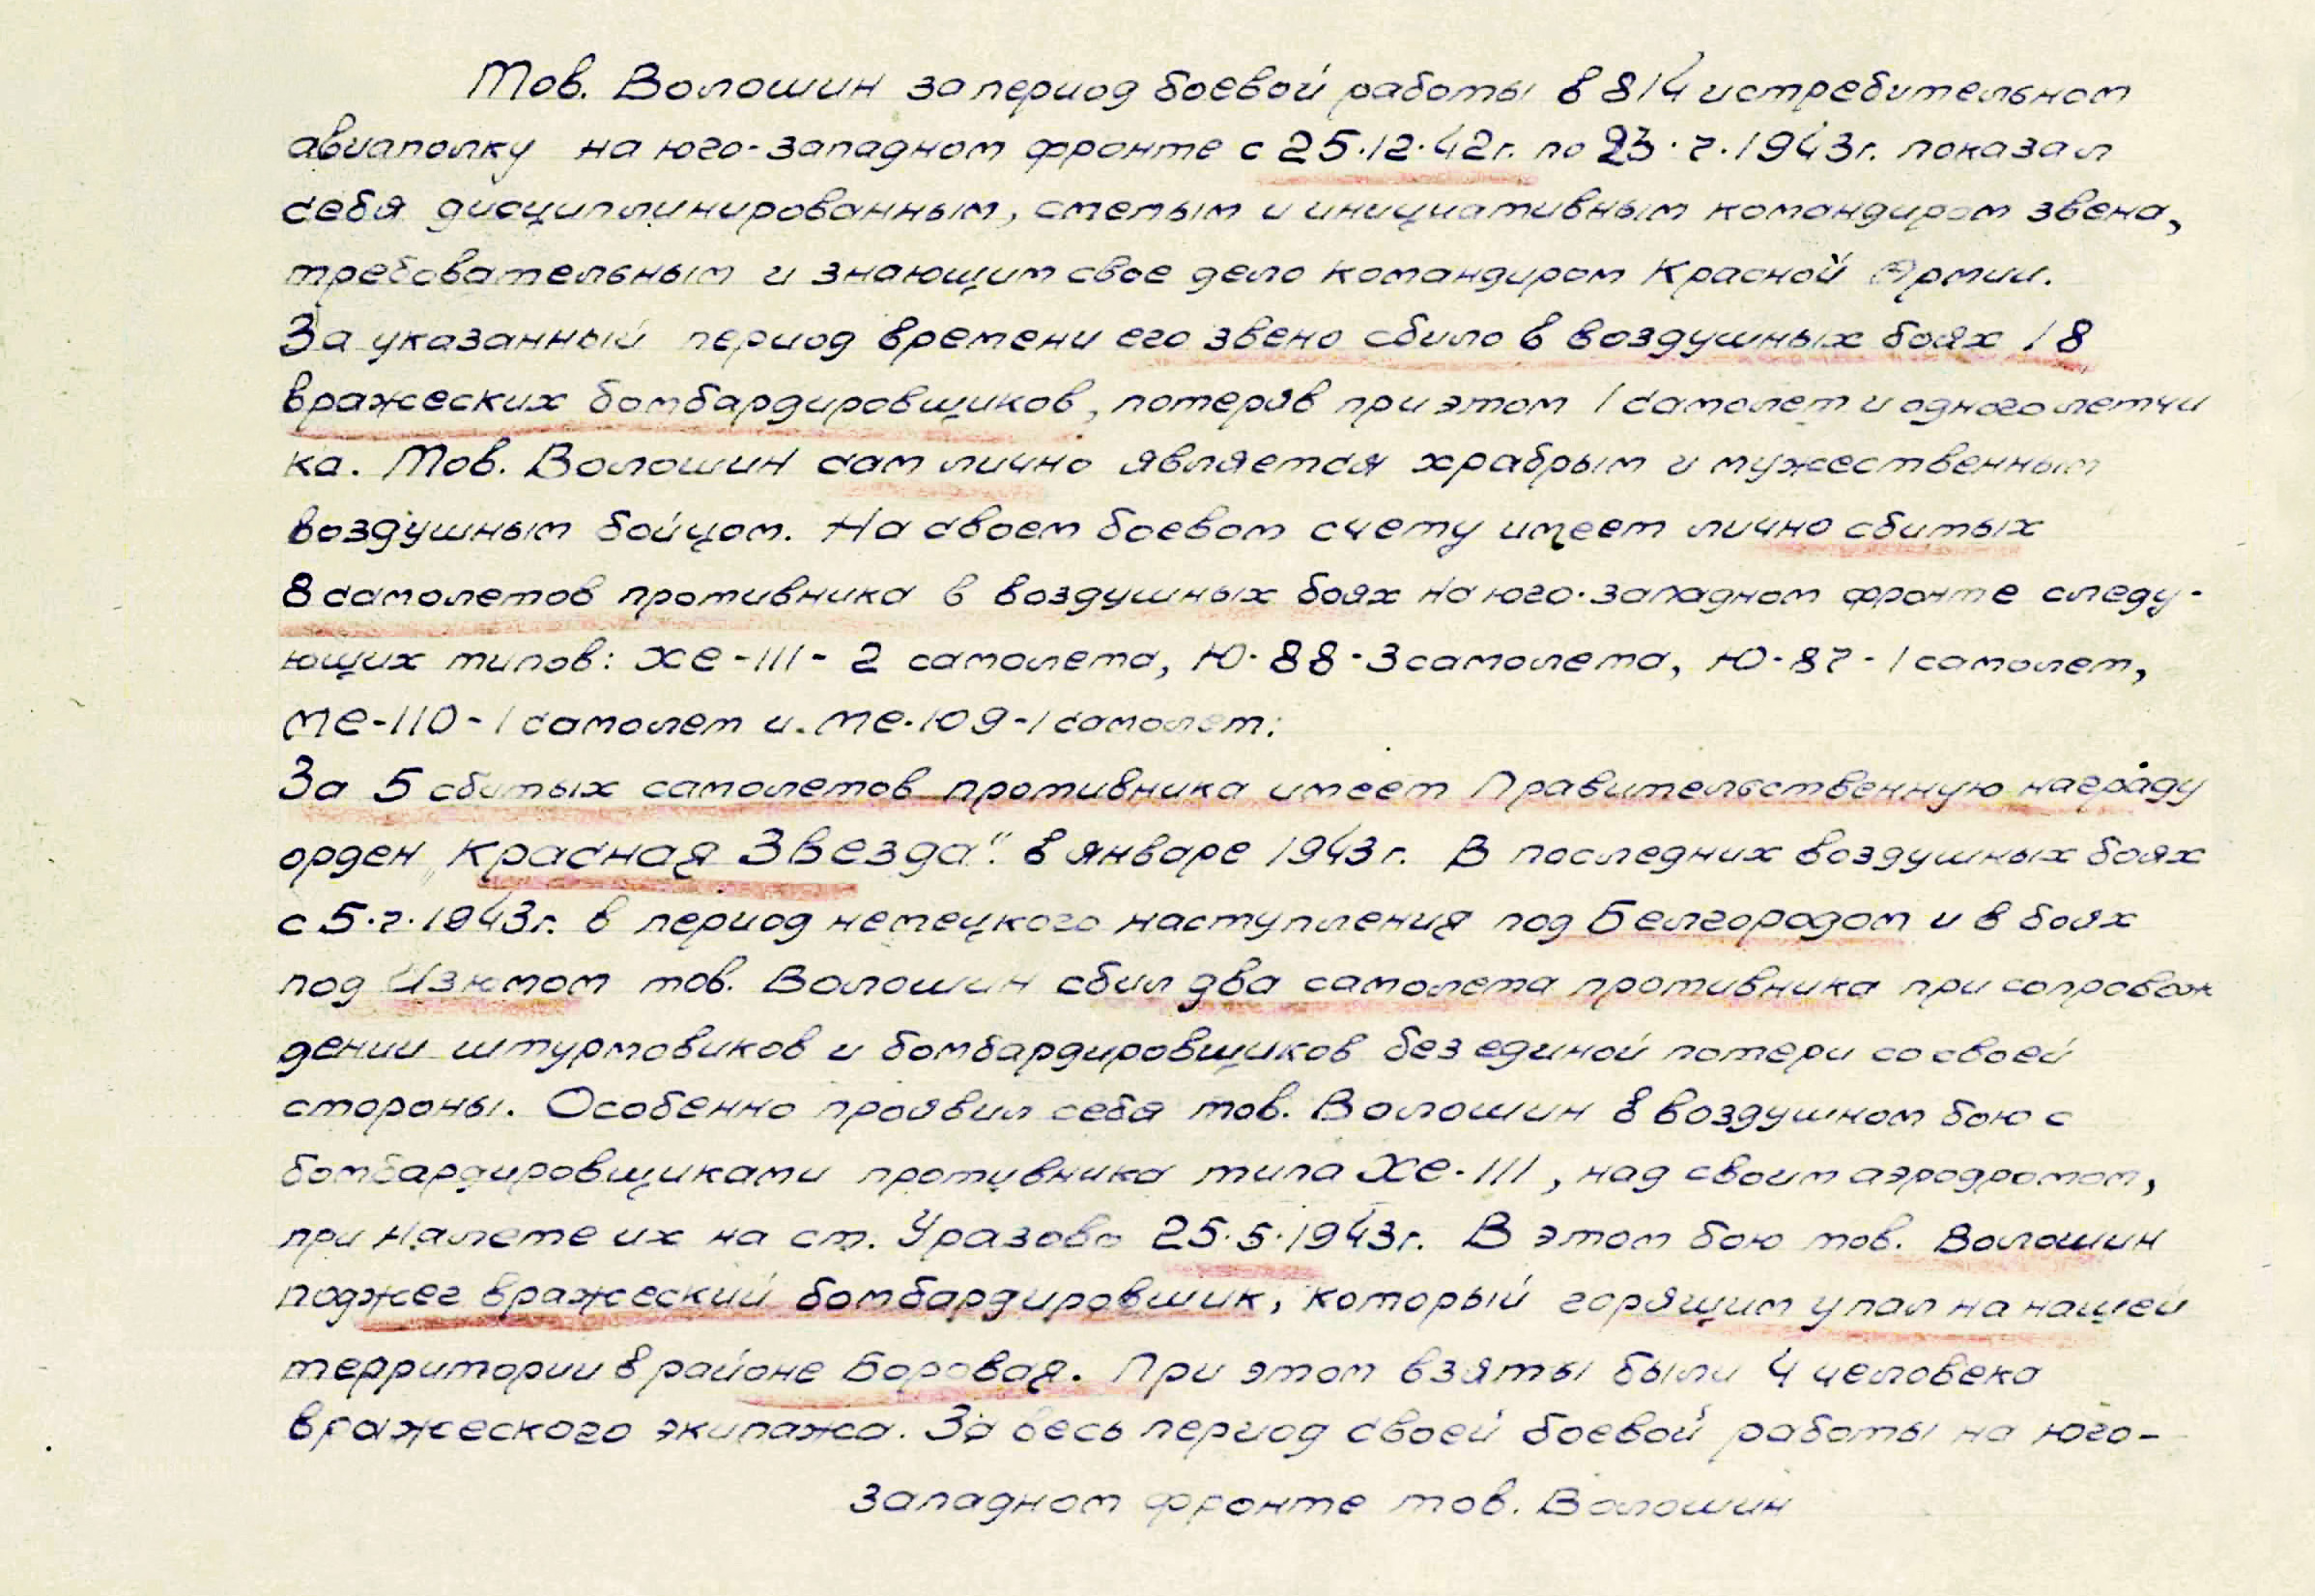 Тов. Волошин за период боевой работы в 814 истребительном
авиаполку на юго-западном фронте с 25.12.42г. по 23.7.1943г. показал
себя дисциплинированным, смелым и инициативным командиром звена,
требовательным и знающим свое дело командиром Красной Армии.
За указанный период времени его звено сбило в воздушных боях 18
вражеских бомбардировщиков, потеряв при этом 1 самолет и одного летчи
ка. Тов. Волошин сам лично является храбрым и мужественным
воздушным бойцом. На своем боевом счету имеет лично сбитых
8 самолетов противника в воздушных боях на юго-западном фронте следу-
ющих типов: ХЕ-111- 2 самолета, Ю-88-3 самолета, Ю-87-1 самолет,
МЕ-110-1 самолет и МЕ-109-1 самолет:
За 5 сбитых самолетов противника имеет Правительственную награду
орден „Красная Звезда". в январе 1943г. В последних воздушных боях
с 5.7.1943г. в период немецкого наступления под Белгородом и в боях
под Изюмом тов. Волошин сбил два самолета противника при сопровож
дении штурмовиков и бомбардировщиков без единой потери со своей
стороны. Особенно проявил себя тов. Волошин в воздушном бою с
бомбардировщиками противника типа ХЕ-111, над своим аэродромом,
при налете их на ст. Уразово 25.5.1943г. В этом бою тов. Волошин
поджег вражеский бомбардировшик, который горящим упал на нашей
территории в районе Боровая. При этом взяты были 4 человека
вражеского экипажа. За весь период своей боевой работы на юго-
западном фронте тов. Волошин